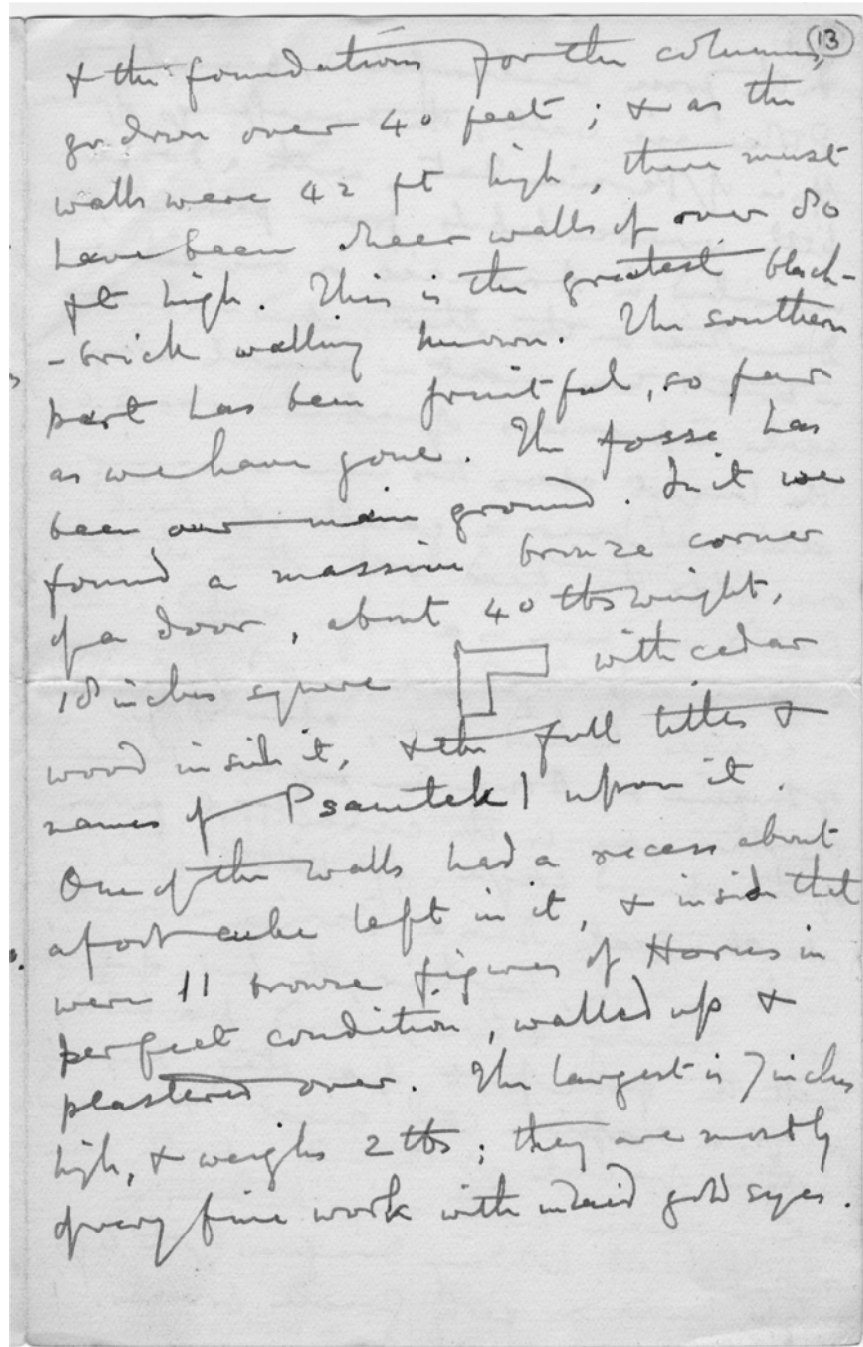 13
& the foundations for the columns,
go down over 40 feet ; & as the
walls were 42 ft high, there must
have been sheer walls of over 80
ft high. This is the greatest black-
-brick walling known. The southern
part has been fruitful, so far
as we have gone. The fosse has
been our main ground. In it we
found a massive bronze corner
of a door, about 40 lbs weight,
18 inches square with cedar
wood inside it, & the full titles &
names of Psamtek I upon it.
One of the walls had a recess about
a foot cube left in it, & inside that
were 11 bronze figures of Horus in
perfect condition, walled up &
plastered over. The largest is 7 inches
high, & weighs 2 lbs ; they are mostly
of very fine work with inlaid gold eyes.